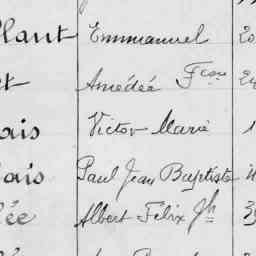 llaut Emmanuel 20
et Amédée Fçois
ais Victor Marie 1
lais Paul Jean Baptiste
ée Albert Félix Jh 39